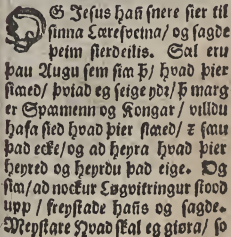 OG Jesus hañ snere sier til
sinna Læresveina/ og sagde
þeim sierdeilis. Sæl eru
þau Augu sem siæ þ/ hvad þier
siaaed/ þviad eg seige ydr/ þ marg
er Spamenn og Kongar/ villdu
hafa sied hvad þier siaaed/ ꝛ sau
það ecke/ og ad heyra hvad þier
heyred og heyrdu það eige. Og
siaa/ ad nockur Løgvitringur stood
upp / freystade hañs og sagde.
Meystare Hvad skal eg giøra/ so